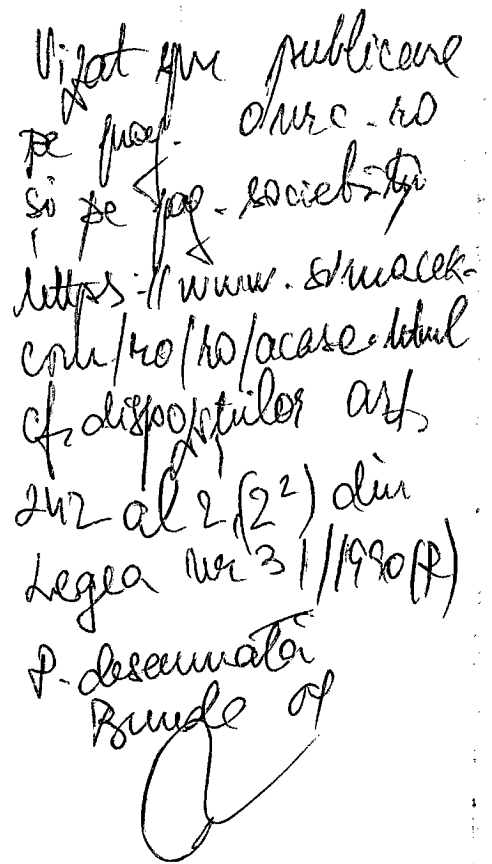 Vizat spre publicare
pe pag. onrc.ro
și pe pag. societății
https://www.simacek.
com/ro/ro/acasa.html
cf. dispozițiilor art.
242 al 2, (2²) din
Legea nr 31/1990(R)
P. desemnată